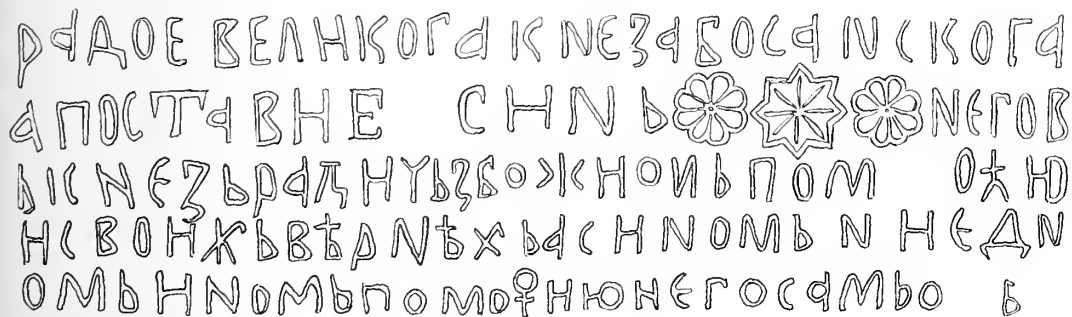 РАДОЕ ВЕЛИКОГА КНЕЗА БОСАНСКОГА
А ПОСТАВИ Е СИНЬ НЕГОВ
Ь КНЕЗЬ РАДИЧЬ З БОЖИОНЬ ПОМ ОЋЮ
И СВОИЖЬ ВѢРНѢХЬ А С ИНОМЬ НИЕДН
ОМЬ ИНОМЬ ПОМОЋИЮ НЕГО САМЬ О Ь